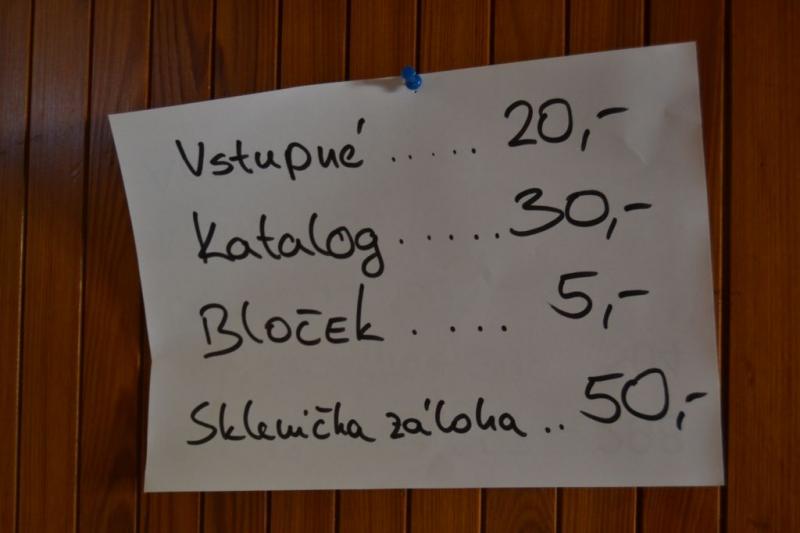 Vstupné ..... 20,-
Katalog ..... 30,-
Bloček .... 5,-
Sklenička záloha .. 50,-